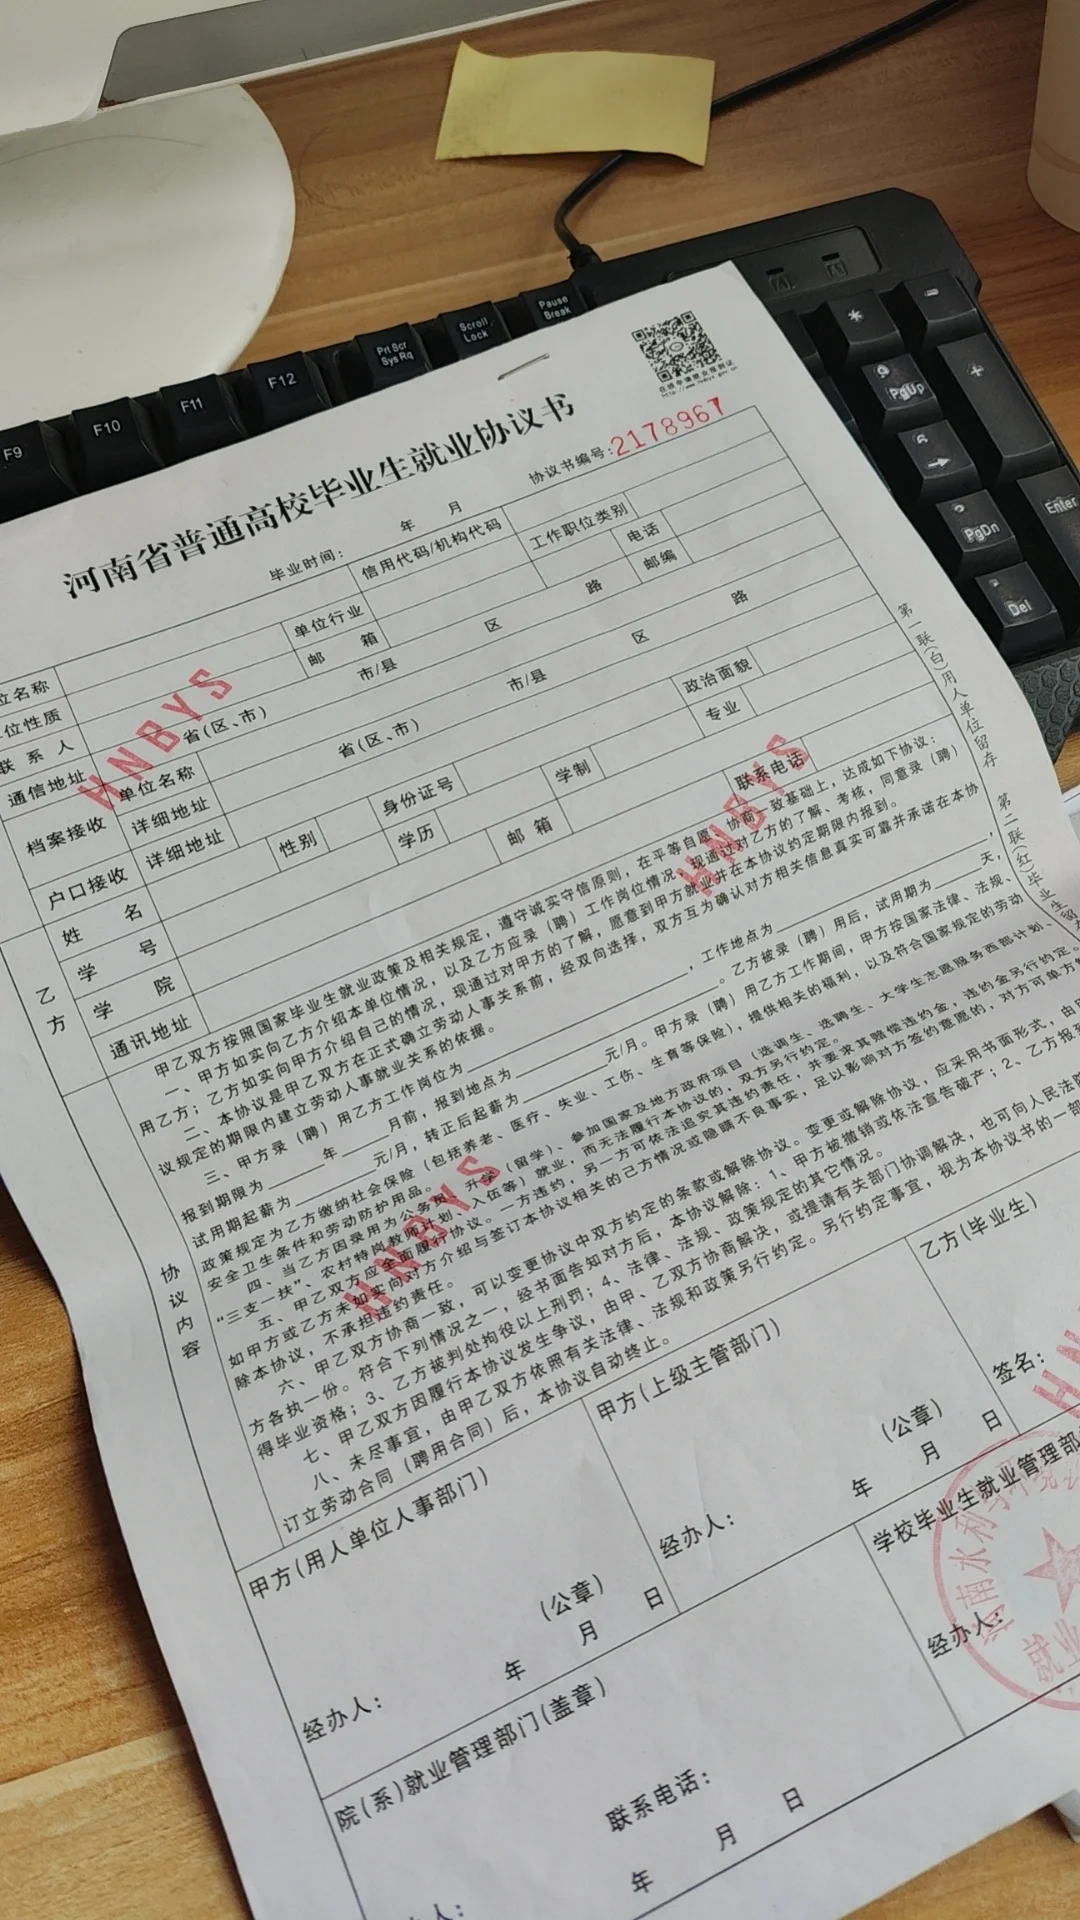 F9
F10
F11
F12
Prt Scr
Sys Rq
Scroll
Lock
Pause
Break
*
-
9
PgUp
+
6
PgDn
Enter
Del
http://www.hnbys.gov.cn
河南省普通高校毕业生就业协议书
协议书编号:2178967
毕业时间: 年 月
位名称
信用代码/机构代码
工作职位类别
位性质
单位行业
电话
联系人
邮箱
邮编
通信地址
省(区、市) 市/县 区 路
档案接收
单位名称
详细地址
省(区、市) 市/县 区 路
户口接收
详细地址
乙方
姓名
性别
身份证号
学制
政治面貌
学号
学历
专业
学院
邮箱
联系电话
通讯地址
HNBYS
HNBYS
第一联(白)用人单位留存
第二联(红)毕业生留
协议内容
甲乙双方按照国家毕业生就业政策及相关规定，遵守诚实守信原则，在平等自愿、协商一致基础上，达成如下协议：
一、甲方如实向乙方介绍本单位情况，以及乙方应录（聘）工作岗位情况，现通过对乙方的了解、考核，同意录（聘）
用乙方；乙方如实向甲方介绍自己的情况，现通过对甲方的了解，愿意到甲方就业并在本协议约定期限内报到。
二、本协议是甲乙双方在正式确立劳动人事关系前，经双向选择，双方互为确认对方相关信息真实可靠并承诺在本协
议规定的期限内建立劳动人事就业关系的依据。
三、甲方录（聘）用乙方工作岗位为 ，工作地点为 ，
报到期限为 年 月前，报到地点为 。乙方被录（聘）用后，试用期为 天，
试用期起薪为 元/月，转正后起薪为 元/月。甲方录（聘）用乙方工作期间，甲方按国家法律、法规、
政策规定为乙方缴纳社会保险（包括养老、医疗、失业、工伤、生育等保险），提供相关的福利，以及符合国家规定的劳动
安全卫生条件和劳动防护用品。
四、当乙方因录用为公务员、升学（留学）、参加国家及地方政府项目（选调生、选聘生、大学生志愿服务西部计划、
“三支一扶”、农村特岗教师计划、入伍等）就业，而无法履行本协议的，双方另行约定。
五、甲乙双方应全面履行协议。一方违约，另一方可依法追究其违约责任，并要求其赔偿违约金，违约金另行约定。
如甲方或乙方未如实向对方介绍与签订本协议相关的己方情况或隐瞒不良事实，足以影响对方签约意愿的，对方可单方解
除本协议，不承担违约责任。
六、甲乙双方协商一致，可以变更协议中双方约定的条款或解除协议。变更或解除协议，应采用书面形式，由
方各执一份。符合下列情况之一，经书面告知对方后，本协议解除：1、甲方被撤销或依法宣告破产；2、乙方报到
得毕业资格；3、乙方被判处拘役以上刑罚；4、法律、法规、政策规定的其它情况。
七、甲乙双方因履行本协议发生争议，由甲、乙双方协商解决，或提请有关部门协调解决，也可向人民法院
八、未尽事宜，由甲乙双方依照有关法律、法规和政策另行约定。另行约定事宜，视为本协议书的一部
订立劳动合同（聘用合同）后，本协议自动终止。
HNBYS
甲方(用人单位人事部门)
(公章)
经办人: 年 月 日
甲方(上级主管部门)
(公章)
经办人: 年 月 日
乙方(毕业生)
签名:
院(系)就业管理部门(盖章)
联系电话:
年 月 日
学校毕业生就业管理部
经办人:
河南水利与环境
就业